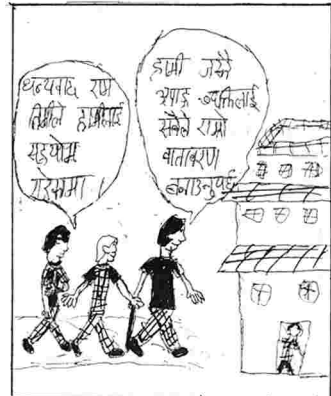 धन्यवाद राम
तिमीले हामीलाई
सहयोग
गरेकोमा ।
हामी जस्तै
अपाङ्ग व्यक्तिलाई
सबैले राम्रो
वातावरण
बनाउनुपर्छ